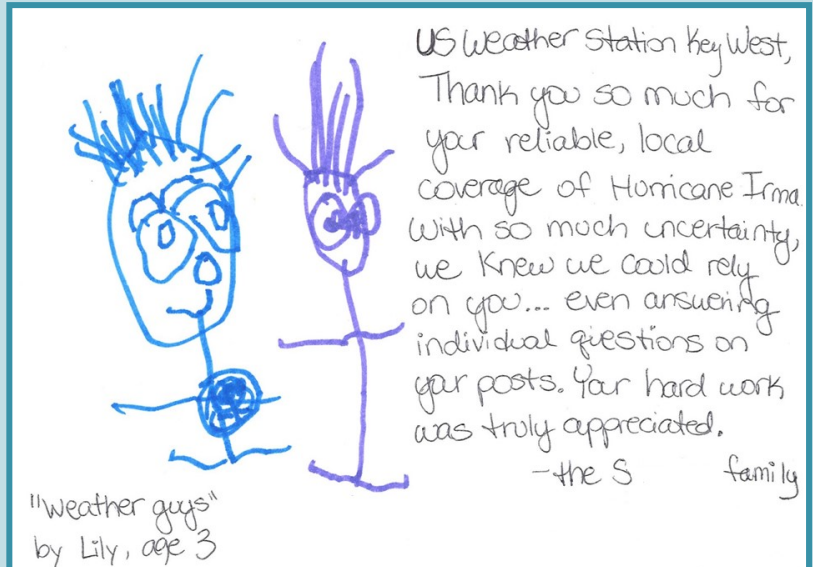 US Weather Station Key West,
Thank you so much for
your reliable, local
coverage of Hurricane Irma.
With so much uncertainty,
we knew we could rely
on you... even answering
individual questions on
your posts. Your hard work
was truly appreciated.
-the S family
"Weather guys"
by Lily, age 3